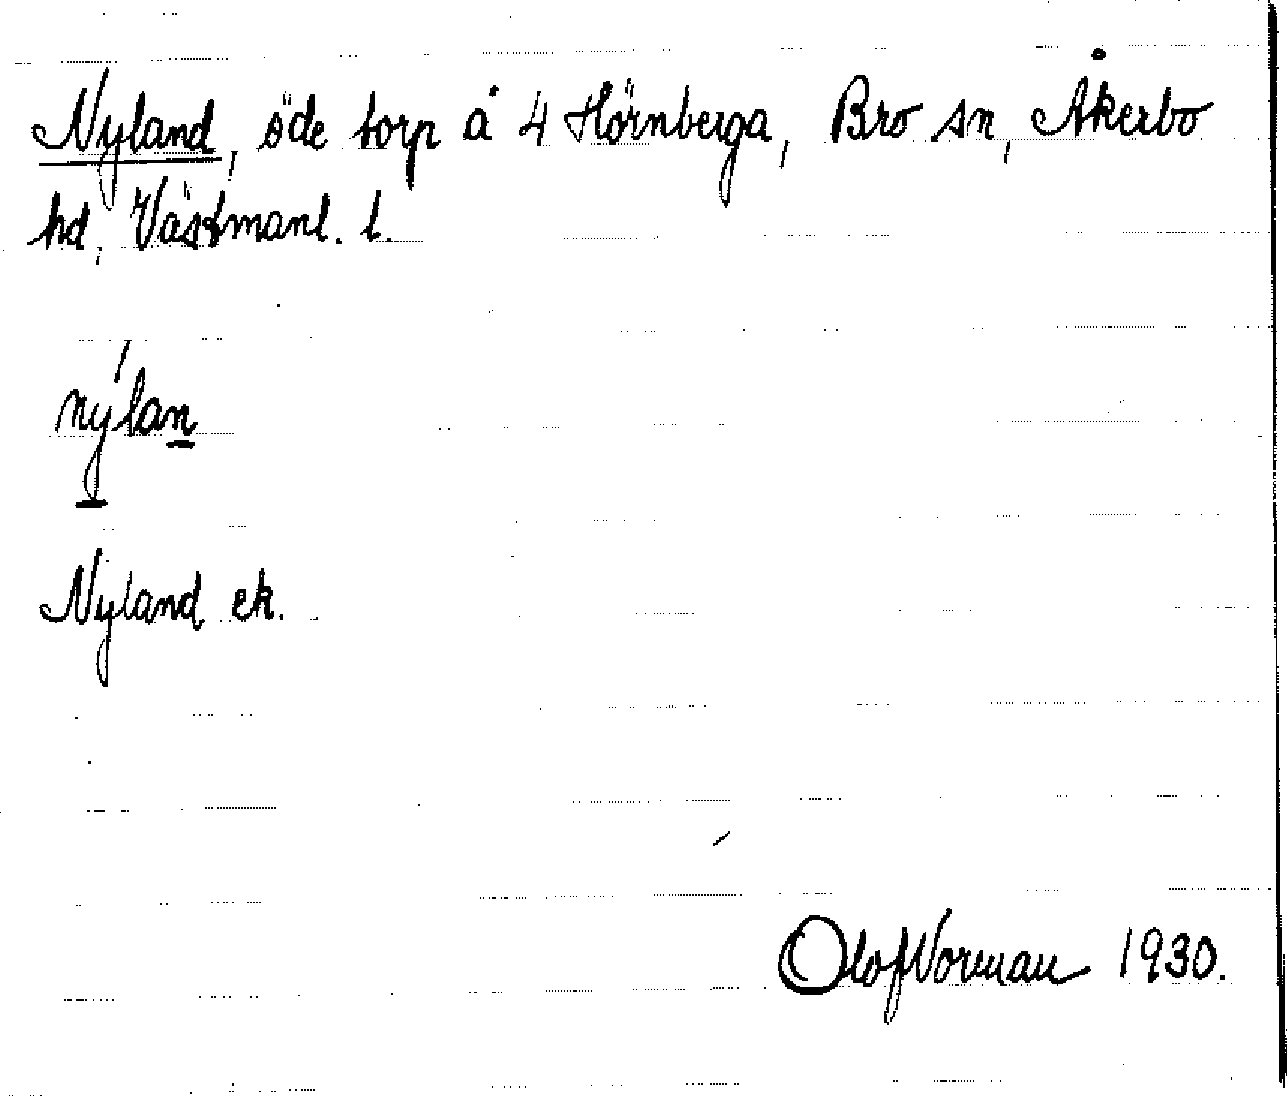 Nyland, öde torp å 4 Hörnberga, Bro sn, Åkerbo
hd, Västmanl. l.
nýlan
Nyland ek.
Olof Norman 1930.